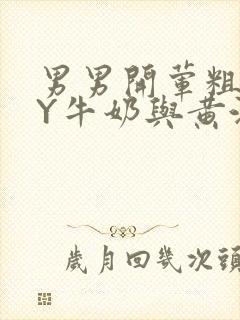 男男開葷粗
Y牛奶與黃
歲月回幾次頭